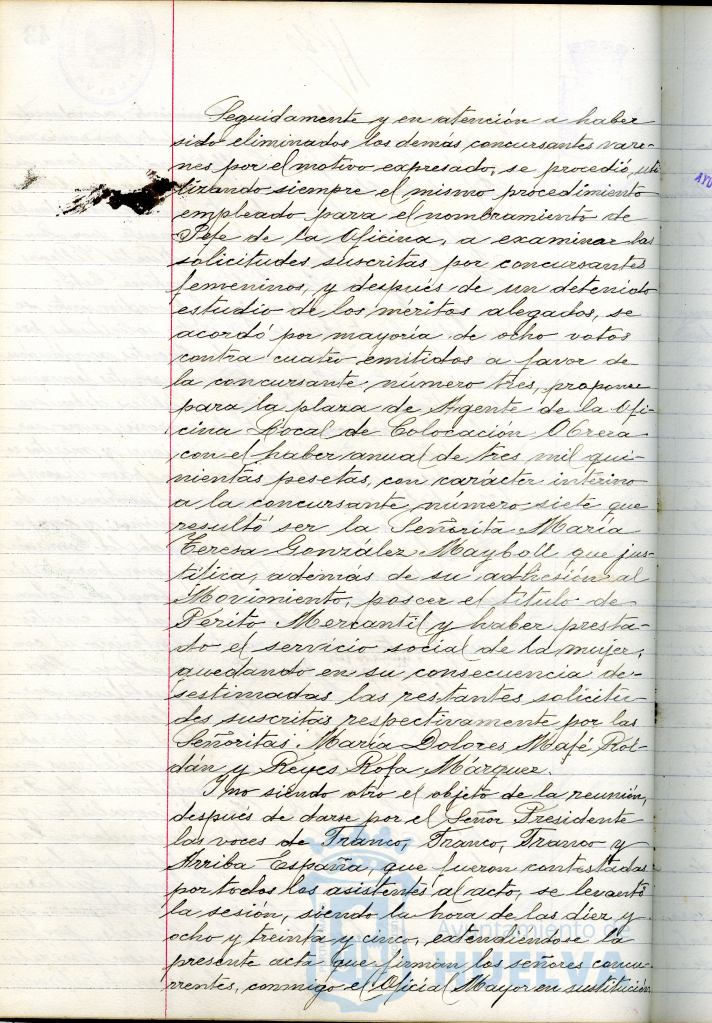 Seguidamente y en atención a haber
sido eliminados los demás concursantes varo-
nes por el motivo expresado, se procedió, uti
lizando siempre el mismo procedimiento
empleado para el nombramiento de
Jefe de la Oficina, a examinar las
solicitudes suscritas por concursantes
femeninos, y después de un detenido
estudio de los méritos alegados, se
acordó por mayoría de ocho votos
contra cuatro emitidos a favor de
la concursante número tres, proponer
para la plaza de Agente de la Ofi-
cina Local de Colocación Obrera
con el haber anual de tres mil qui-
nientas pesetas, con carácter interino
a la concursante número siete que
resultó ser la Señorita María
Teresa González Mayboll, que jus-
tifica, además de su adhesión al
Movimiento, poseer el título de
Périto Mercantil y haber presta-
do el servicio social de la mujer,
quedando en su consecuencia de-
sestimadas las restantes solicitu-
des suscritas respectivamente por las
Señoritas María Dolores Mafé Rol-
dán y Reyes Rofa Márquez.
Y no siendo otro el objeto de la reunión,
después de darse por el Señor Presidente
las voces de Franco, Franco, Franco y
Arriba España, que fueron contestadas
por todos los asistentes al acto, se levantó
la sesión, siendo la hora de las diez y
ocho y treinta y cinco, extendiéndose la
presente acta que firman los señores concu-
rrentes, conmigo el Oficial Mayor en sustitución
Ayuntamiento de
HUELVA
AYU